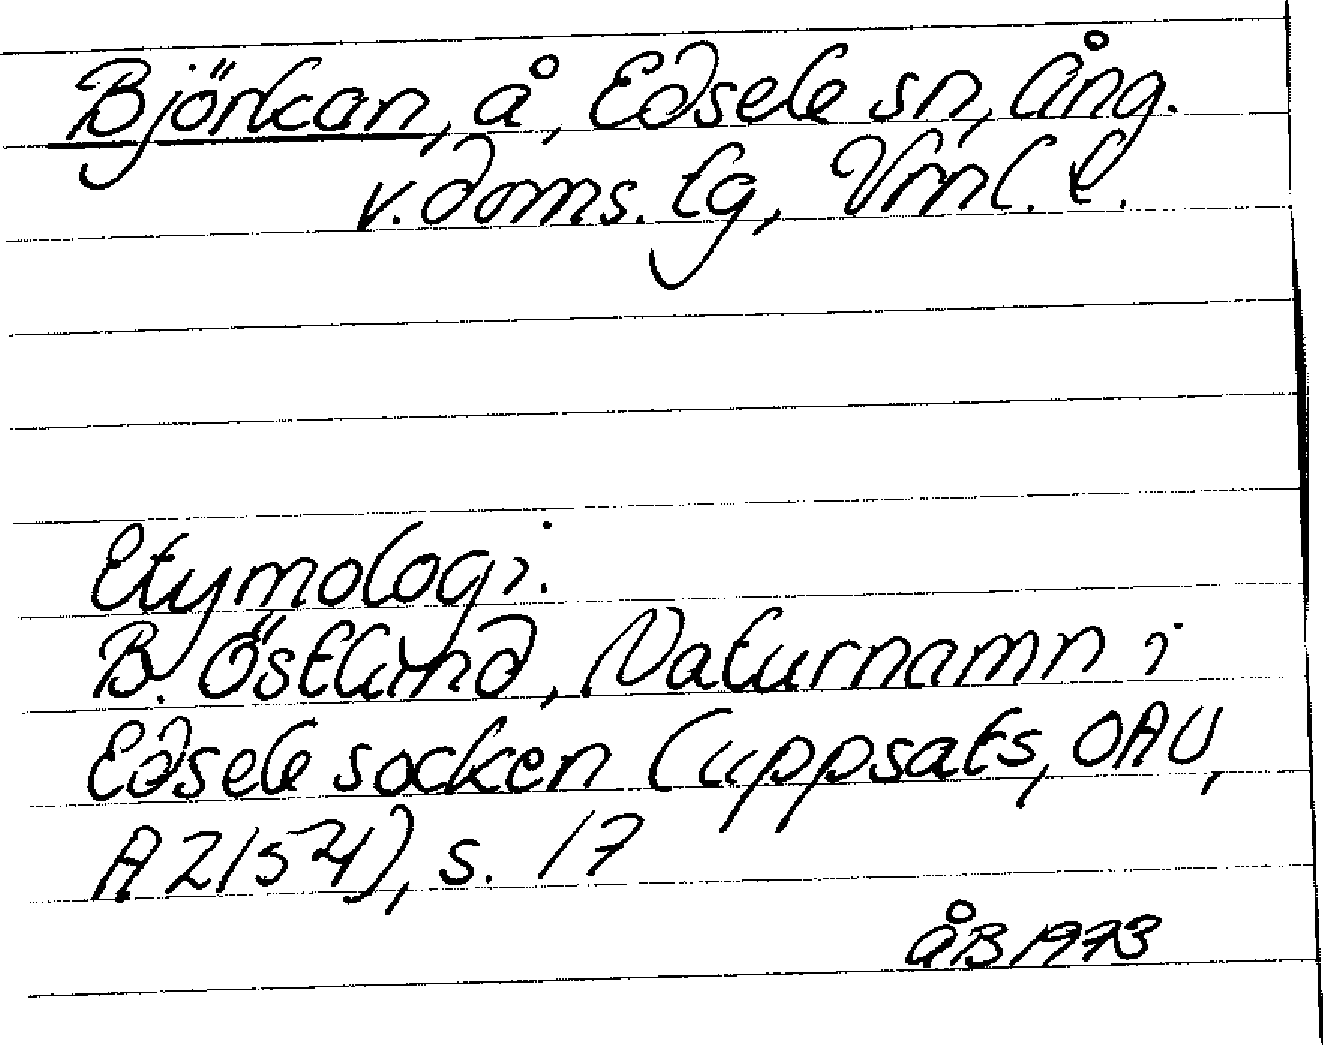 Björkan, å, Edsele sn, Ång.
v. doms. lg, Vrnl. l.
Etymologi.
B. Östlund, Naturnamn i
Edsele socken (uppsats, OAU,
A 2154), s. 17
åB 1973